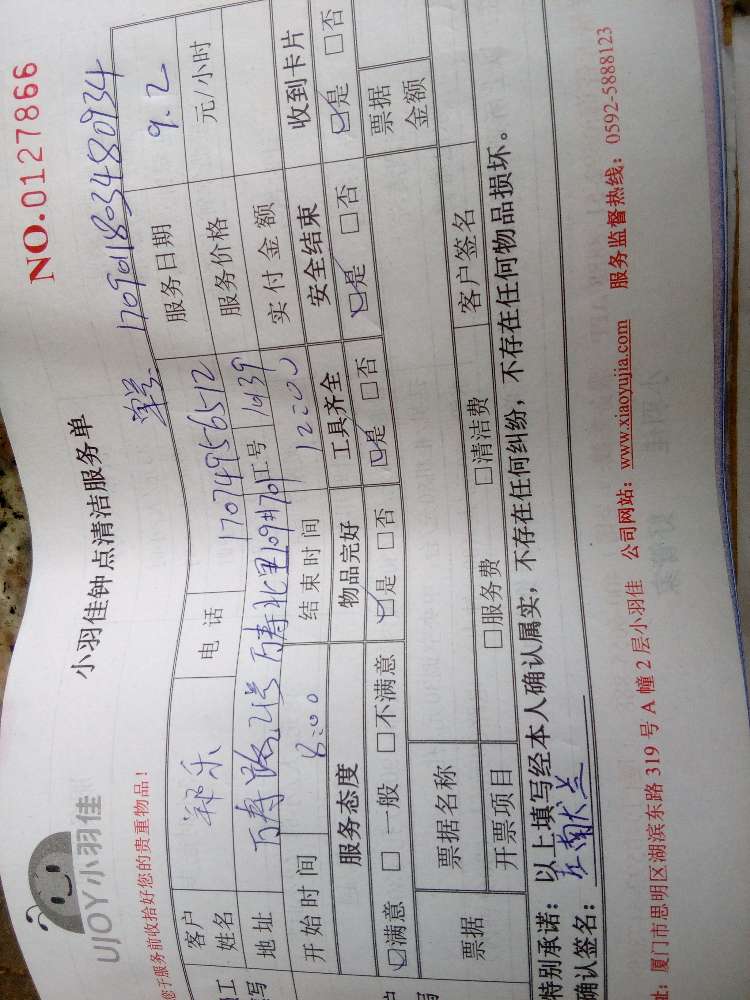 NO.0127866
UJOY小羽佳
小羽佳钟点清洁服务单
单号 170901180348 0934
您于服务前收拾好您的贵重物品！
客户姓名 郑乐 电话 17074956512 服务日期 9.2
地址 万寿路21号万寿北里109#701 工号 1039 服务价格 元/小时
开始时间 8:00 结束时间 12:00 实付金额
服务态度 物品完好 工具齐全 安全结束 收到卡片
☑满意 □一般 □不满意 ☑是 □否 ☑是 □否 ☑是 □否 ☑是 □否
票据 票据名称 票据金额
开票项目 □服务费 □清洁费 客户签名
特别承诺：以上填写经本人确认属实，不存在任何纠纷，不存在任何物品损坏。
确认签名：
址：厦门市思明区湖滨东路 319 号 A 幢 2 层小羽佳 公司网站：www.xiaoyujia.com 服务监督热线：0592-5888123